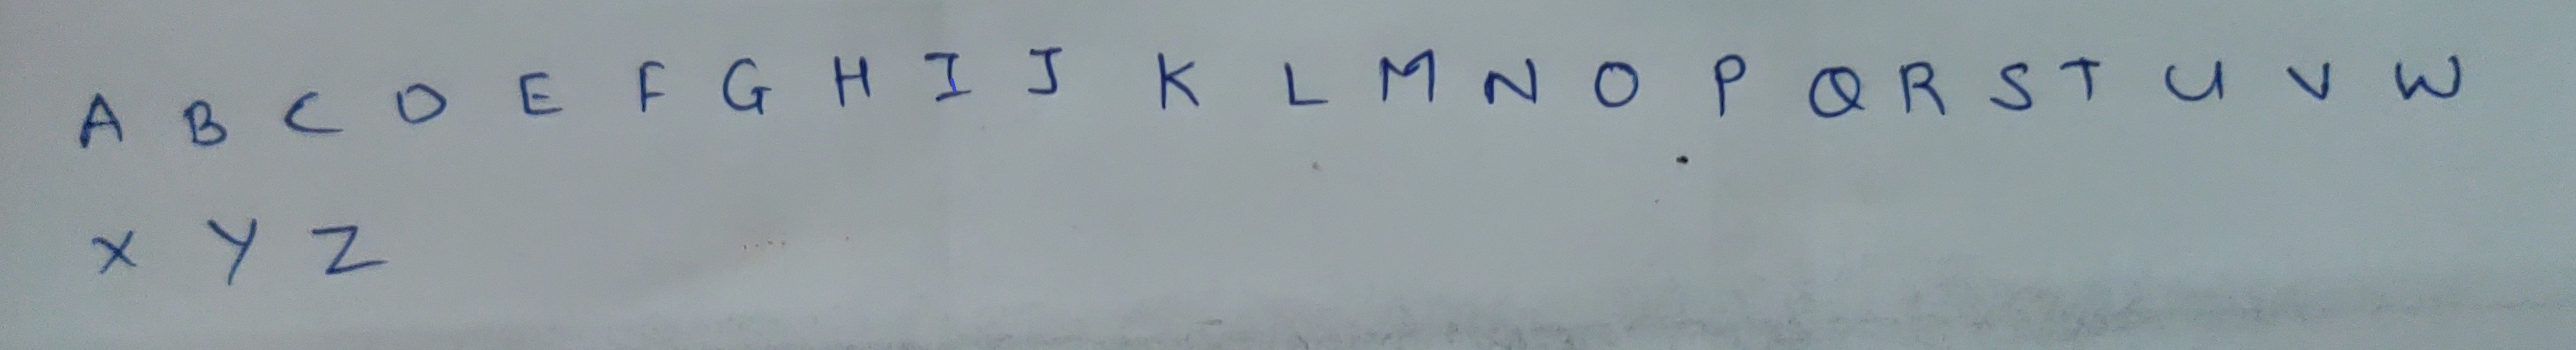 A B C D E F G H I J K L M N O P Q R S T U V W
X Y Z